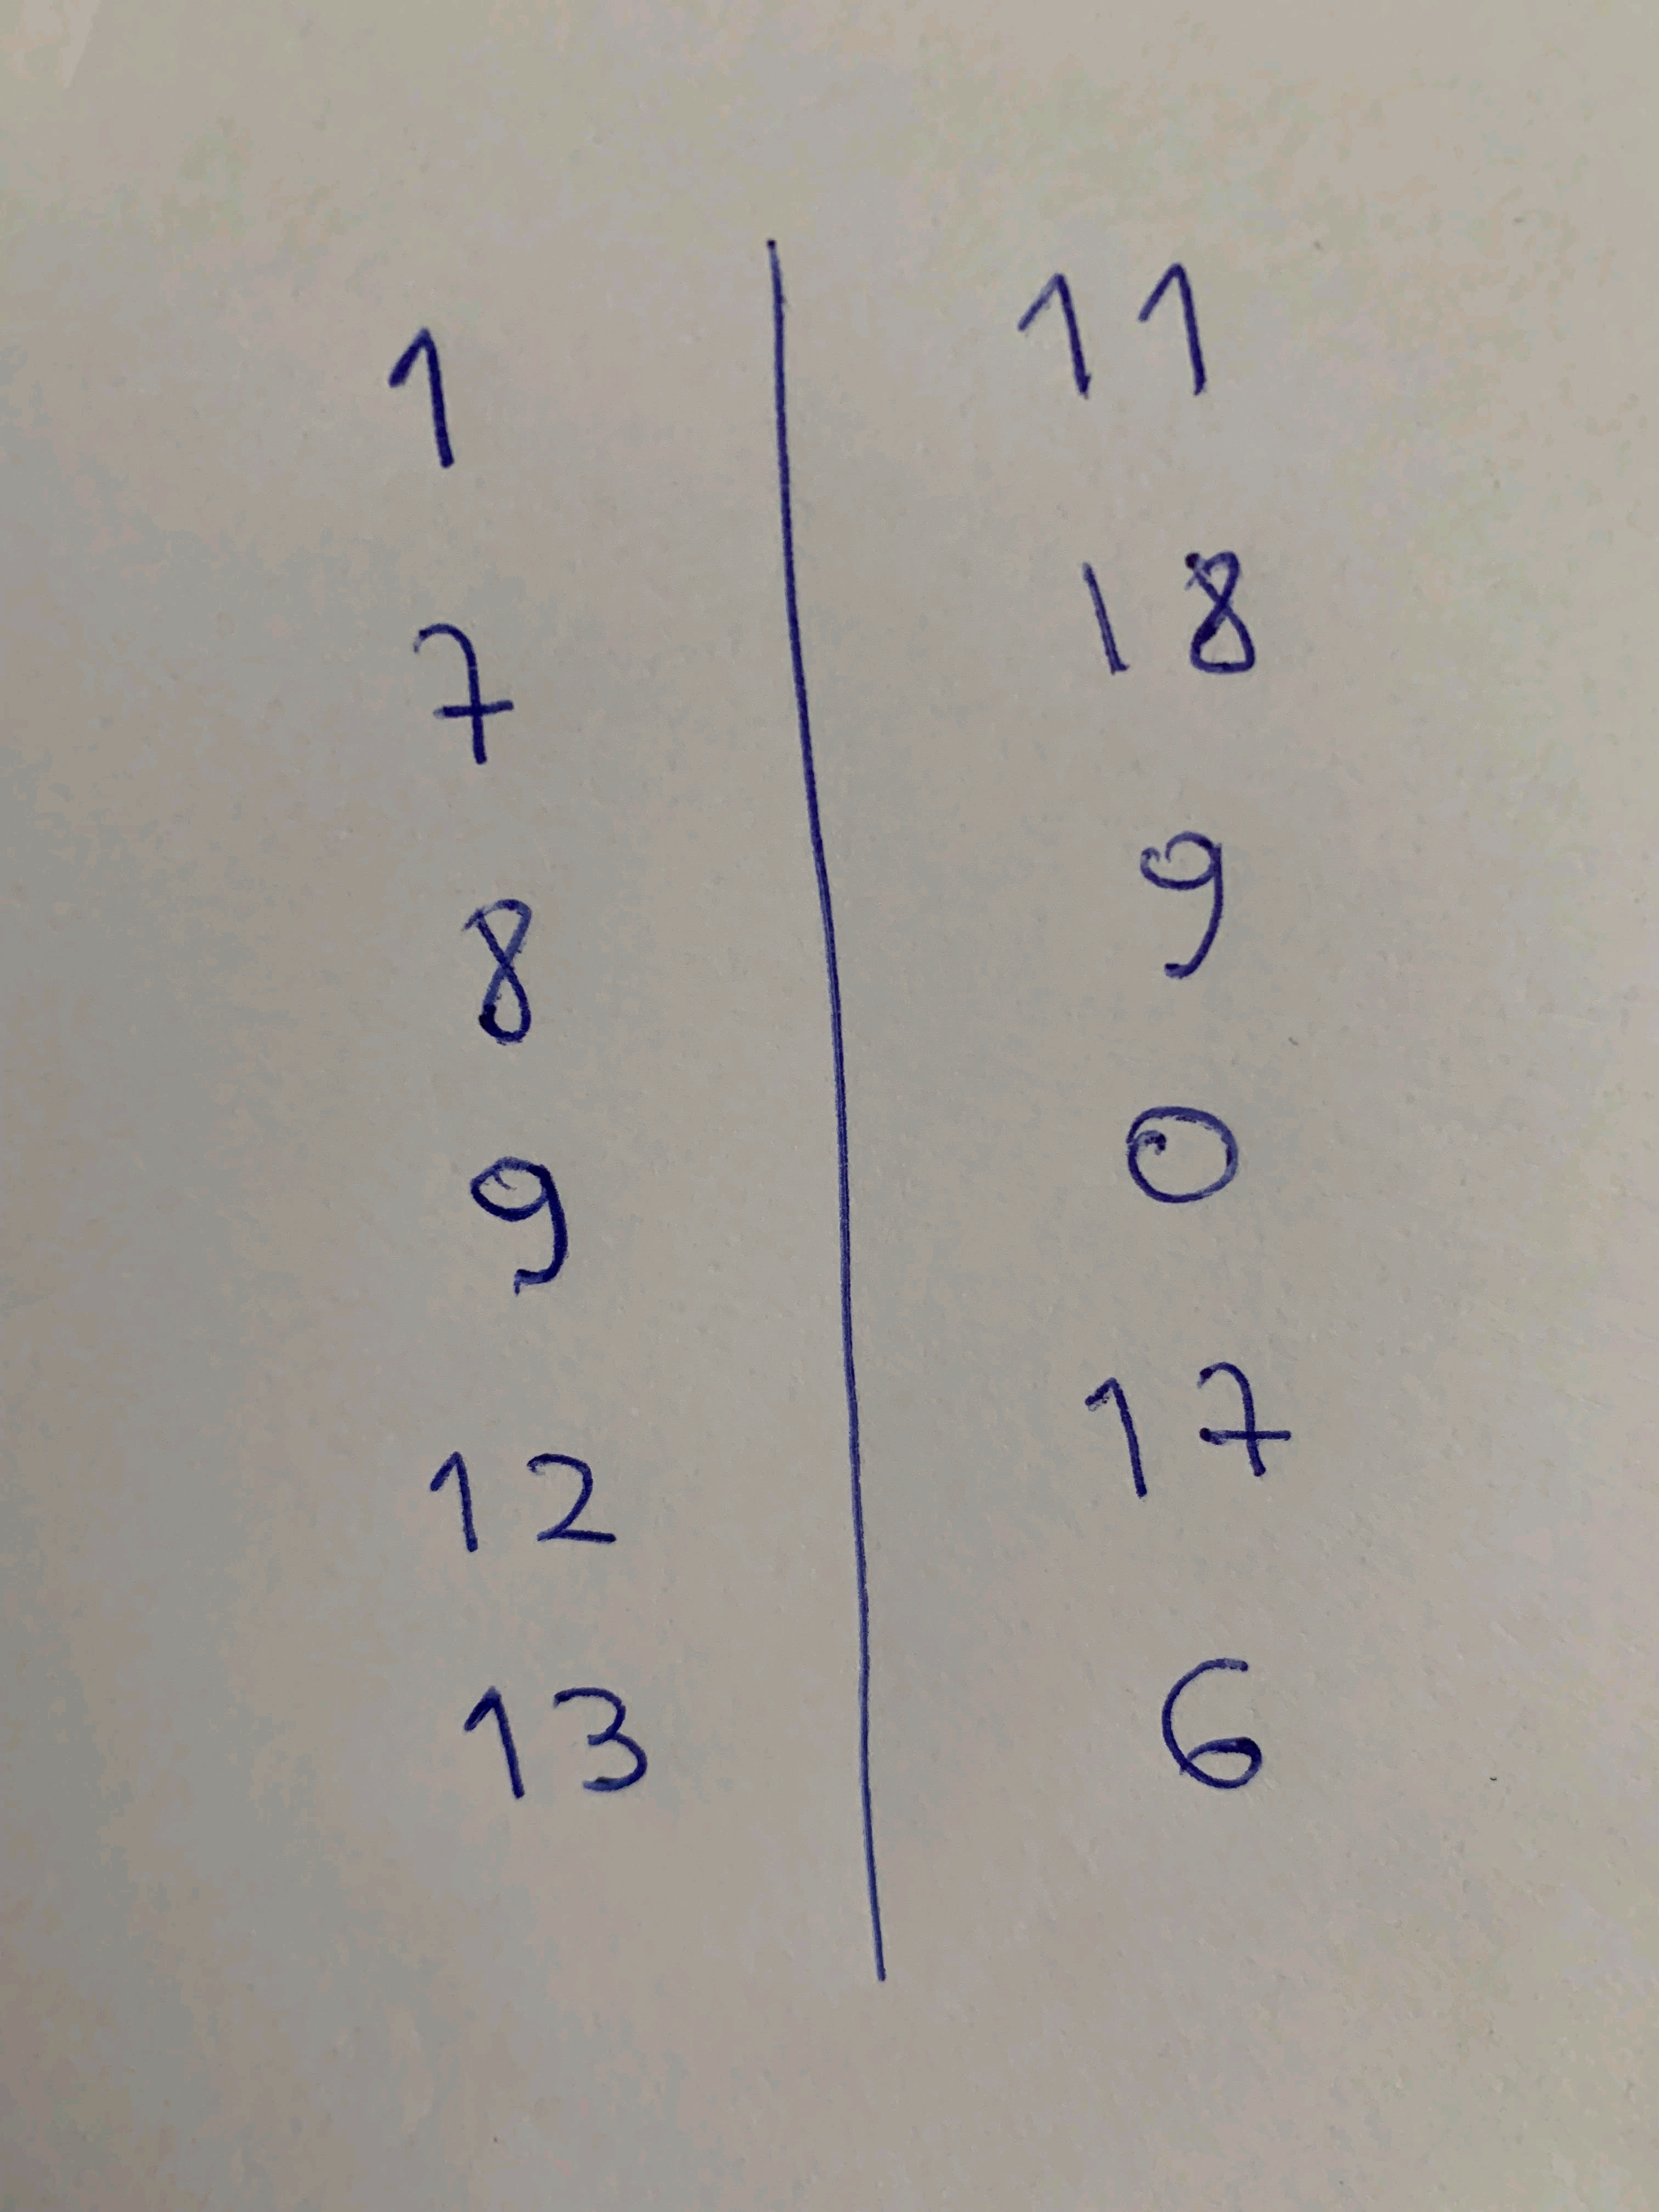 1 11
7 18
8 9
9 0
12 17
13 6